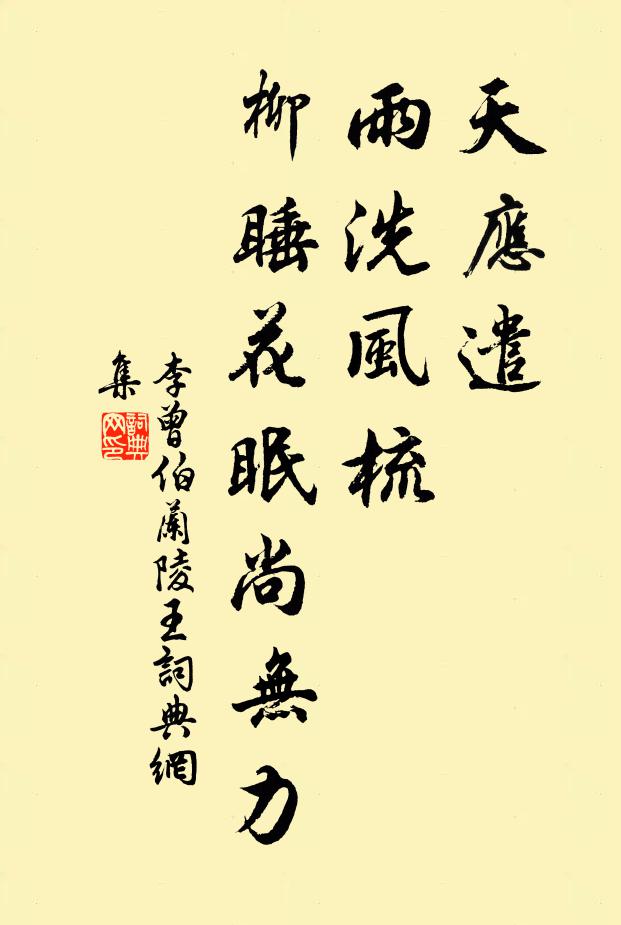 天應遣
雨洗風梳
柳睡花眠尚無力
李曾伯蘭陵王詞典網
集
詞典
网印